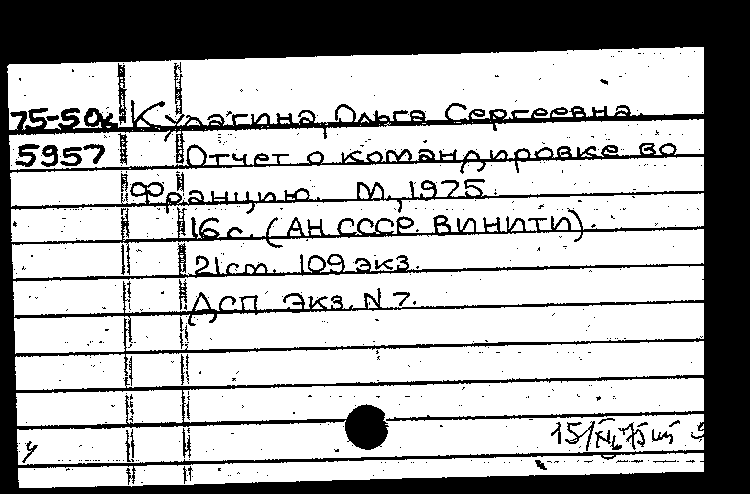 75-50к Кулагина, Ольга Сергеевна.
5957 Отчет о командировке во
Францию. М., 1975.
16 с. (АН СССР. ВИНИТИ).
21 см. 109 экз.
ДСП Экз. N 7.
у